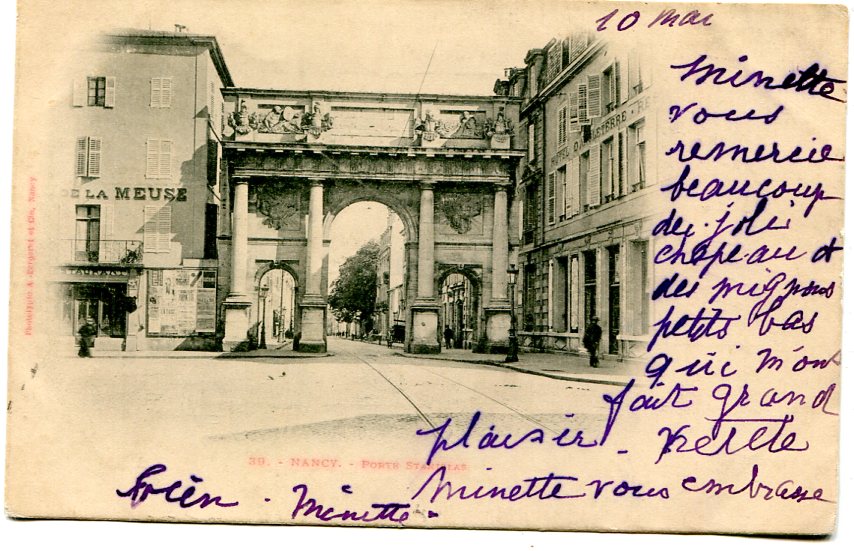 10 mai
Minette
vous
remercie
beaucoup
du joli
chapeau et
des mignons
petits bas
qui m'ont
fait grand
plaisir - petite
Minette vous embrasse
bien - Minette -
DE LA MEUSE
RESTAURANT
HÔTEL D'ANGLETERRE - RE
39. - NANCY. - PORTE STANISLAS
Phototypie A. Bergeret et Cie, Nancy